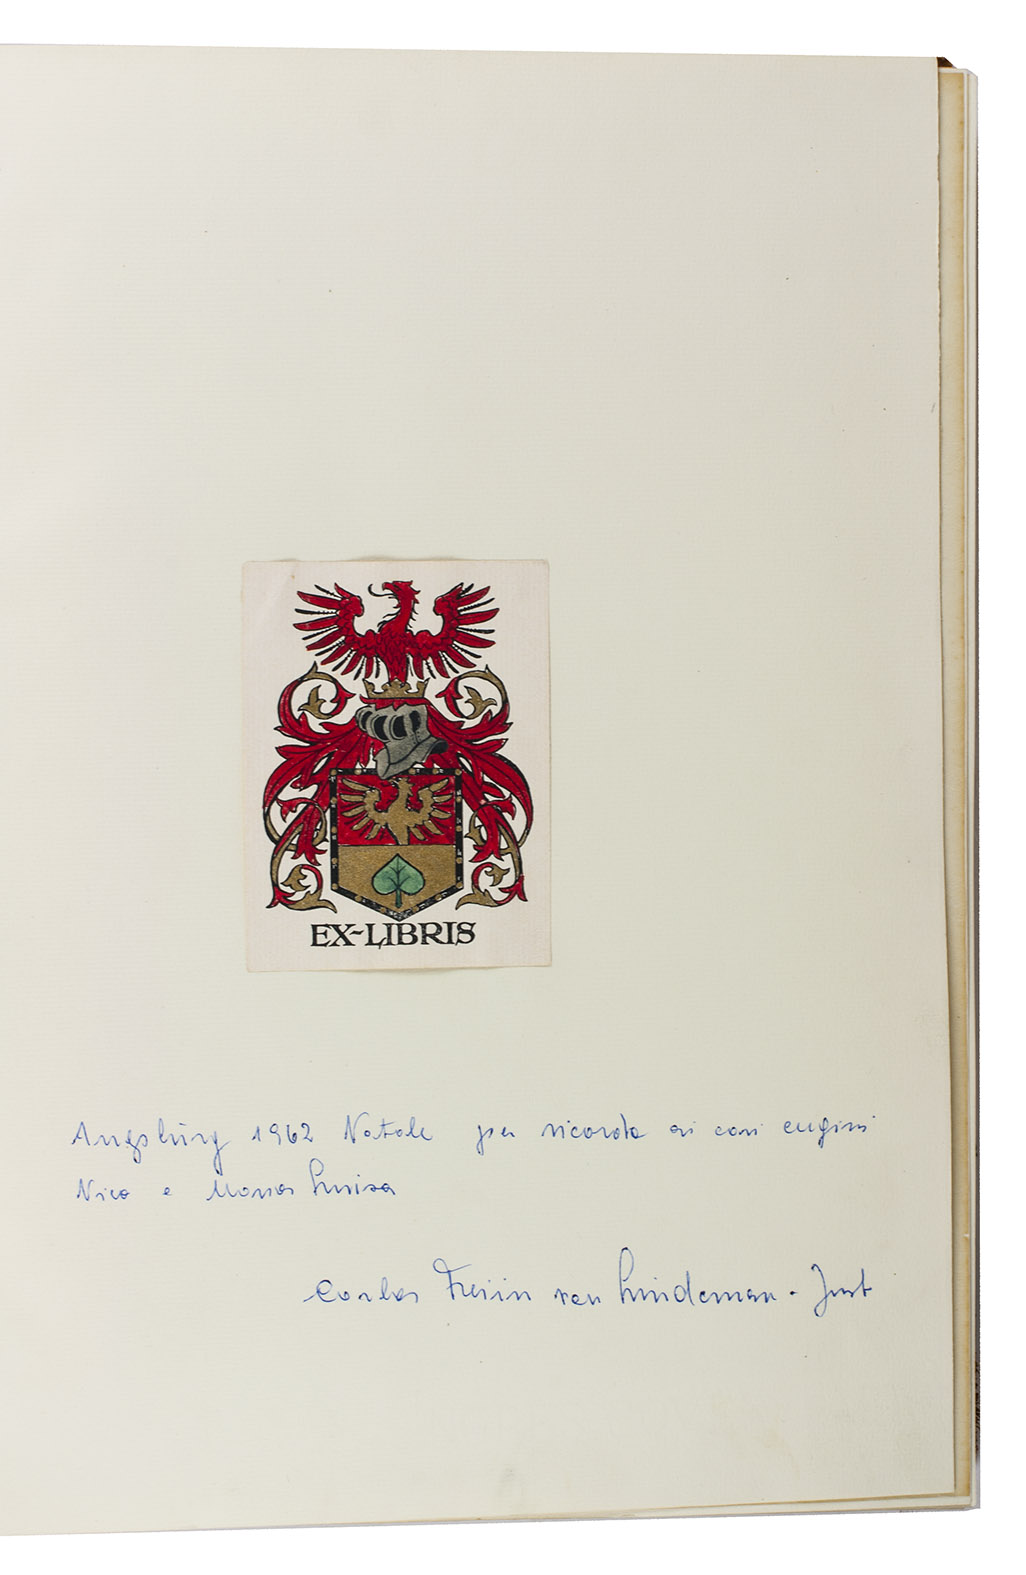 EX-LIBRIS
Augsburg 1962 Natale per ricordo ai cari cugini
Nico e Maria Luisa
Carla Freiin von Lindeman - Just